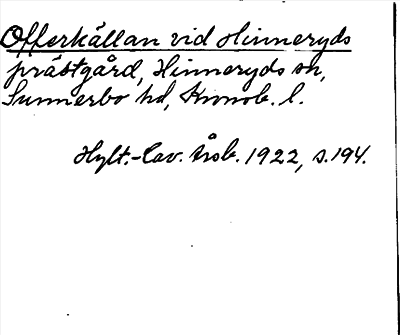 Offerkällan vid Hinneryds
prästgård, Hinneryds sn,
Sunnerbo hd, Kronob. l.
Hylt.-Cav. årsb. 1922, s. 194.